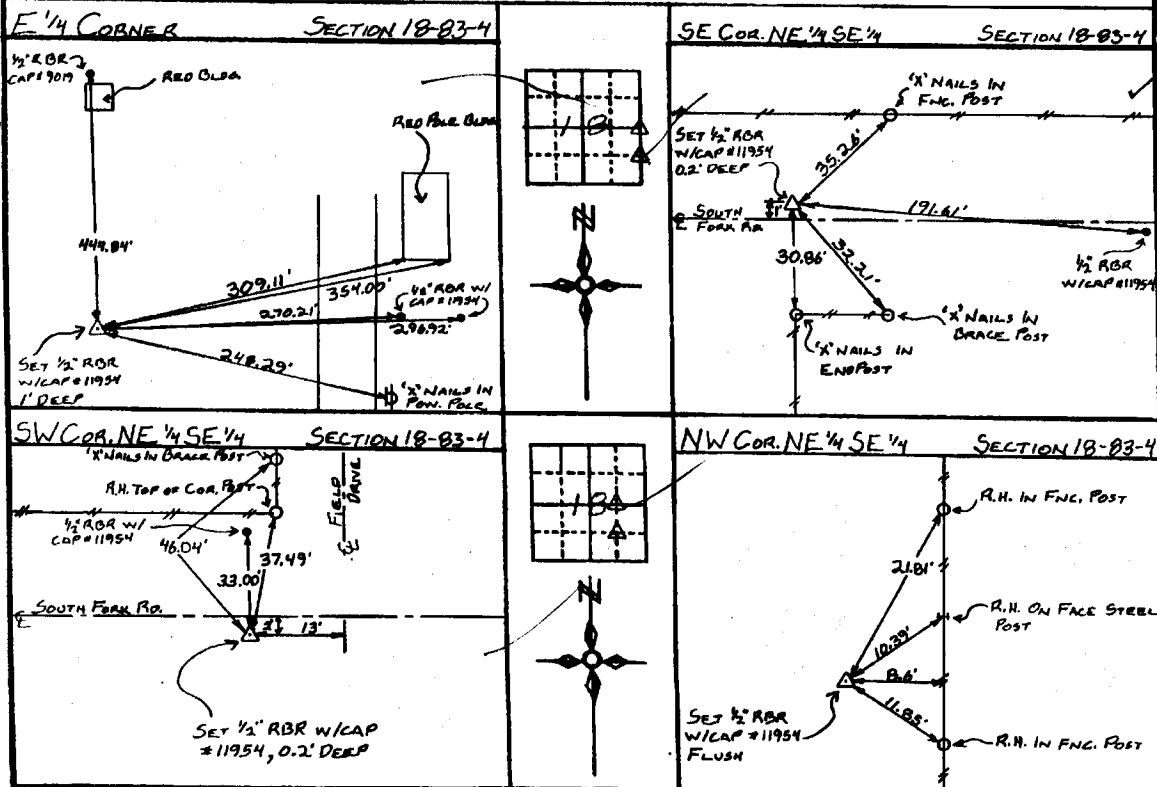 E 1/4 CORNER SECTION 18-83-4
1/2" RBR
CAP # 9019
RED BLDG
RED POLE BLDG
449.84'
309.11'
354.00'
270.21'
1/2" RBR W/
CAP #11954
296.92'
248.29'
SET 1/2" RBR
W/CAP #11954
1' DEEP
'X' NAILS IN
POW. POLE
18
N
SE COR. NE 1/4 SE 1/4 SECTION 18-83-4
'X' NAILS IN
FNC. POST
SET 1/2" RBR
W/CAP #11954
0.2' DEEP
35.26'
1'
191.61'
℄ SOUTH
FORK RD.
30.86'
32.21'
1/2" RBR
W/CAP #11954
'X' NAILS IN
BRACE POST
'X' NAILS IN
END POST
SW COR. NE 1/4 SE 1/4 SECTION 18-83-4
'X' NAILS IN BRACE POST
R.H. TOP OF COR. POST
℄ FIELD
DRIVE
1/2" RBR W/
CAP #11954
46.04'
37.49'
33.00'
℄ SOUTH FORK RD.
13'
SET 1/2" RBR W/CAP
#11954, 0.2' DEEP
18
N
NW COR. NE 1/4 SE 1/4 SECTION 18-83-4
R.H. IN FNC. POST
21.81'
R.H. ON FACE STEEL
POST
10.39'
8.6'
11.85'
SET 1/2" RBR
W/CAP #11954
FLUSH
R.H. IN FNC. POST